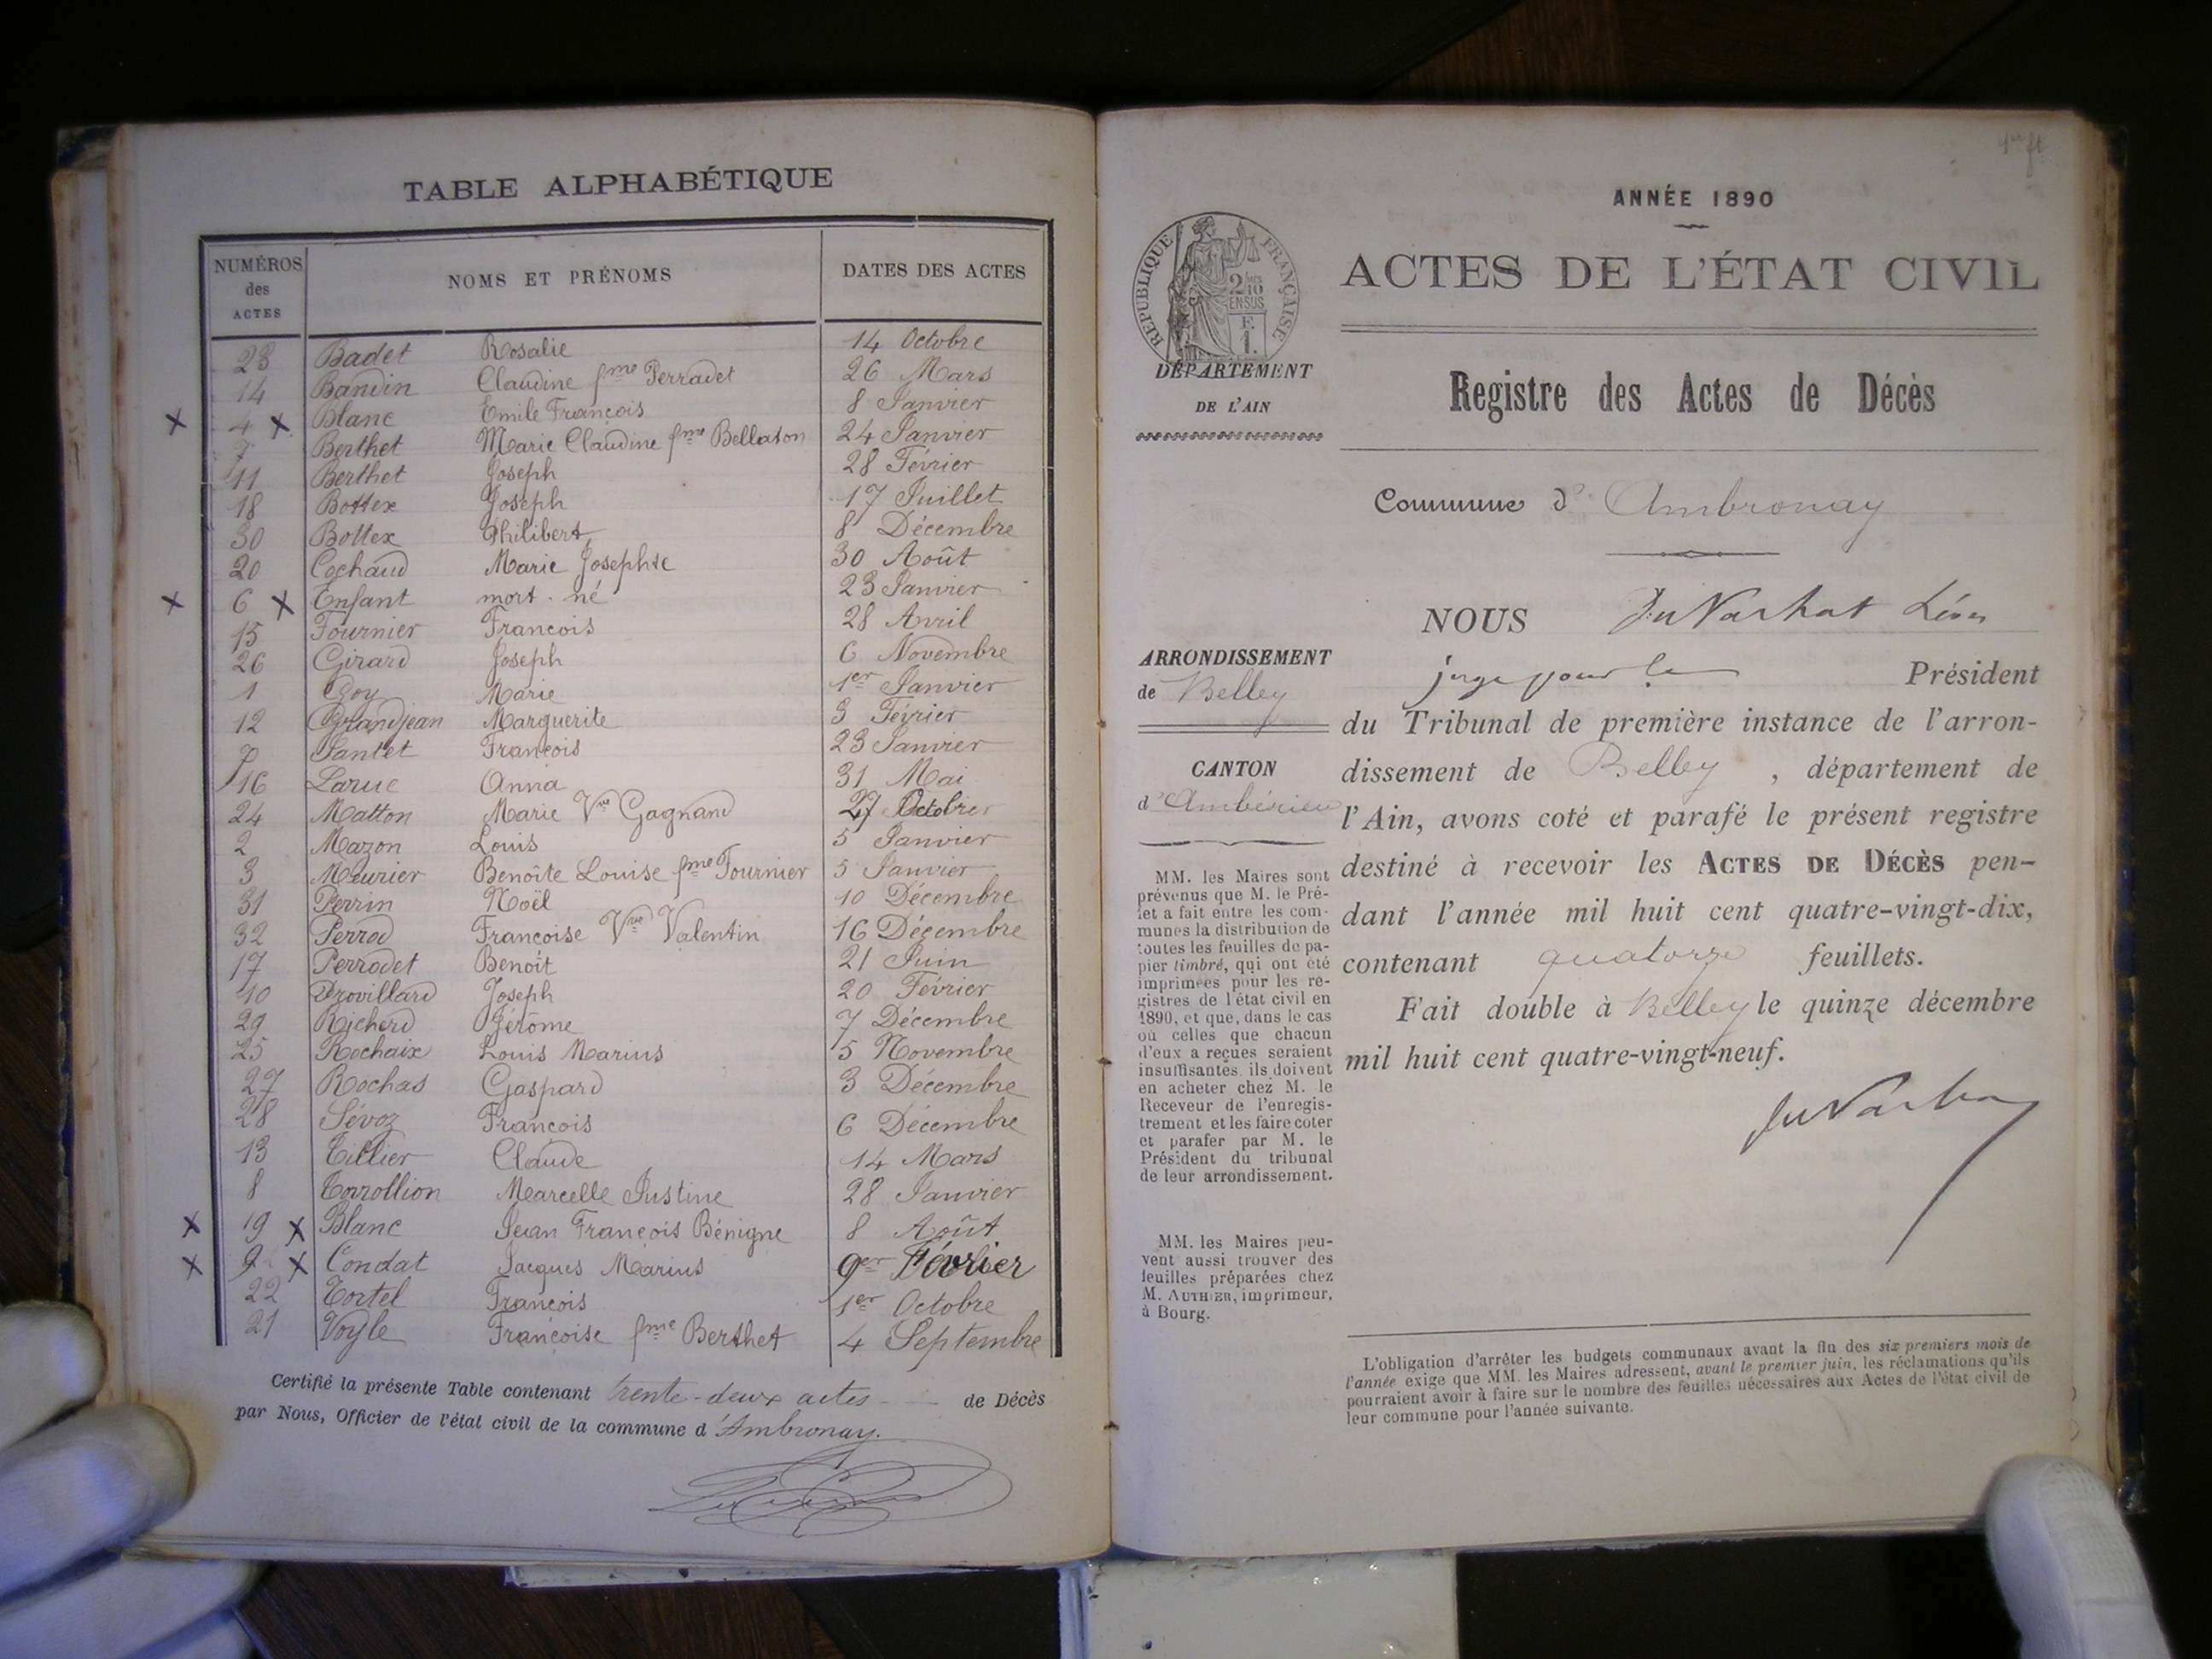 TABLE ALPHABÉTIQUE
NUMÉROS des ACTES NOMS ET PRÉNOMS DATES DES ACTES
23 Badet Rosalie 14 Octobre
14 Bandin Claudine fme Perradet 26 Mars
x 4 x Blanc Emile François 8 Janvier
7 Berthet Marie Claudine fme Bellaton 24 Janvier
11 Berthet Joseph 28 Février
18 Bottex Joseph 17 Juillet
30 Bottex Philibert 8 Décembre
20 Cochaud Marie Josephte 30 Août
x 6 x Enfant mort-né 23 Janvier
15 Fournier Francois 28 Avril
26 Girard Joseph 6 Novembre
1 Goy Marie 1er Janvier
12 Grandjean Marguerite 3 Février
Jantet François 23 Janvier
16 Larue Anna 31 Mai
24 Matton Marie Vve Gagnand 27 Octobre
2 Mazon Louis 5 Janvier
3 Meurier Benoîte Louise fme Fournier 5 Janvier
31 Perrin Noël 10 Décembre
32 Perrod Francoise Vve Valentin 16 Décembre
17 Perrodet Benoît 21 Juin
10 Drovillard Joseph 20 Février
29 Richerd Jérôme 7 Décembre
25 Rochaix Louis Marius 5 Novembre
27 Rochas Gaspard 3 Décembre
28 Sévoz François 6 Décembre
13 Tillier Claude 14 Mars
8 Torrollion Marcelle Justine 28 Janvier
x 19 x Blanc Jean François Bénigne 8 Août
x 9 x Condat Jacques Marius 9er Février
22 Tortel François 1er Octobre
21 Voyle Françoise fme Berthet 4 Septembre
Certifié la présente Table contenant trente-deux actes de Décès
par Nous, Officier de l'état civil de la commune d'Ambronay.
1er ft
ANNÉE 1890
RÉPUBLIQUE FRANÇAISE
2/10 EN SUS
F. 1.
ACTES DE L'ÉTAT CIVIL
DÉPARTEMENT
DE L'AIN
Registre des Actes de Décès
Commune d' Ambronay
NOUS Du Varhat Léon
juge pour le Président
ARRONDISSEMENT
de Belley
du Tribunal de première instance de l'arron-
dissement de Belley, département de
l'Ain, avons coté et parafé le présent registre
destiné à recevoir les ACTES DE DÉCÈS pen-
dant l'année mil huit cent quatre-vingt-dix,
contenant quatorze feuillets.
Fait double à Belley le quinze décembre
mil huit cent quatre-vingt-neuf.
CANTON
d'Ambérieu
MM. les Maires sont
prévenus que M. le Pré-
fet a fait entre les com-
munes la distribution de
toutes les feuilles de pa-
pier timbré, qui ont été
imprimées pour les re-
gistres de l'état civil en
1890, et que, dans le cas
où celles que chacun
d'eux a reçues seraient
insuffisantes, ils doivent
en acheter chez M. le
Receveur de l'enregis-
trement et les faire coter
et parafer par M. le
Président du tribunal
de leur arrondissement.
MM. les Maires peu-
vent aussi trouver des
feuilles préparées chez
M. AUTHIER, imprimeur,
à Bourg.
L'obligation d'arrêter les budgets communaux avant la fin des six premiers mois de
l'année exige que MM. les Maires adressent, avant le premier juin, les réclamations qu'ils
pourraient avoir à faire sur le nombre des feuilles nécessaires aux Actes de l'état civil de
leur commune pour l'année suivante.